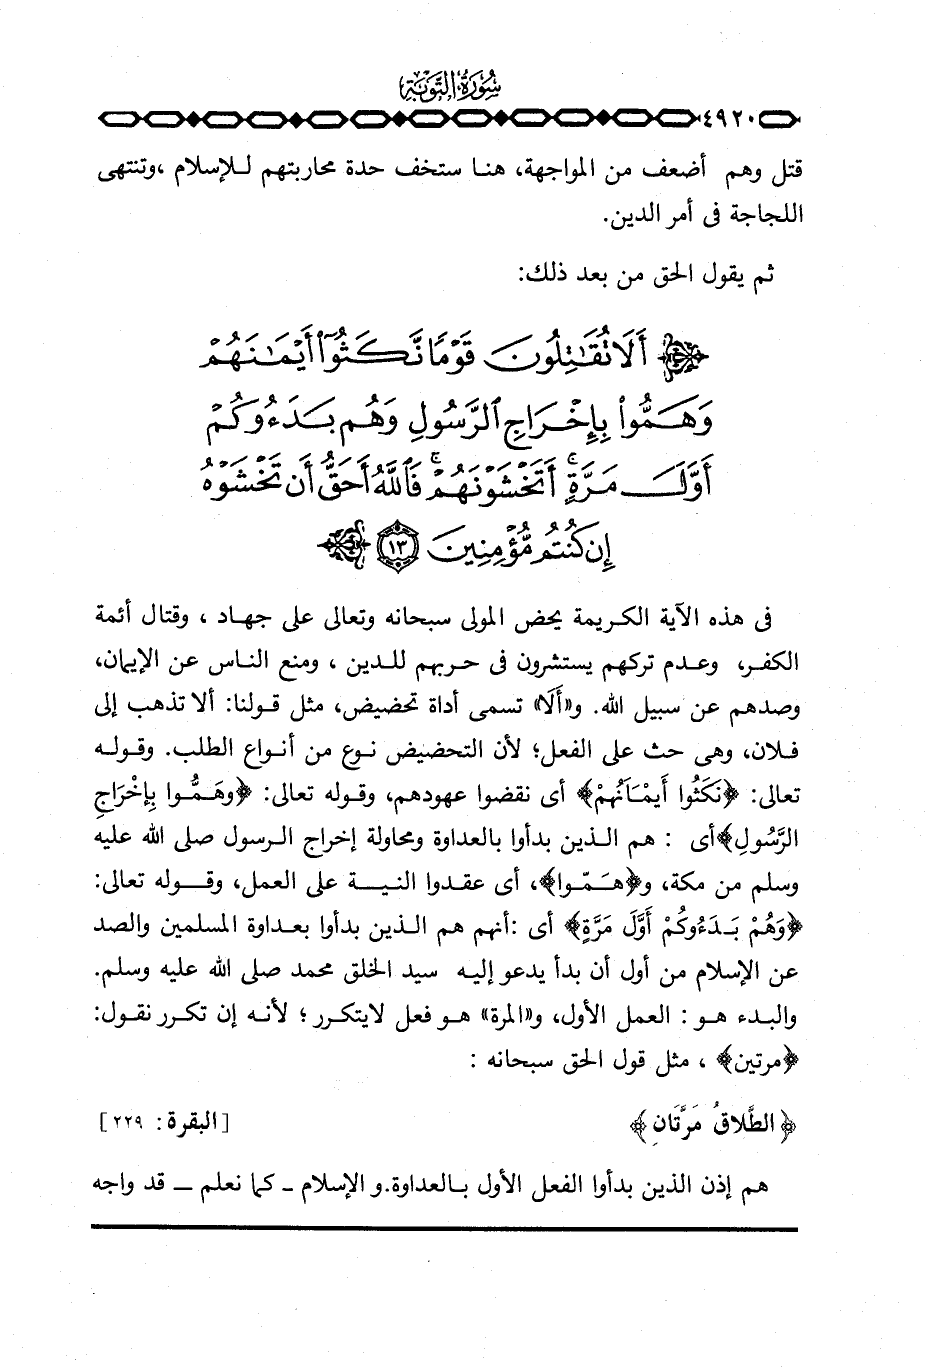 سُورَةُ التَّوْبَةِ
٤٩٢٠
قتل وهم أضعف من المواجهة، هنا ستخف حدة محاربتهم للإسلام ،وتنتهى
اللجاجة فى أمر الدين.
ثم يقول الحق من بعد ذلك:
﴿ أَلَا تُقَٰتِلُونَ قَوْمًا نَّكَثُوٓا۟ أَيْمَٰنَهُمْ
وَهَمُّوا۟ بِإِخْرَاجِ ٱلرَّسُولِ وَهُم بَدَءُوكُمْ
أَوَّلَ مَرَّةٍ ۚ أَتَخْشَوْنَهُمْ ۚ فَٱللَّهُ أَحَقُّ أَن تَخْشَوْهُ
إِن كُنتُم مُّؤْمِنِينَ ١٣ ﴾
فى هذه الآية الكريمة يحض المولى سبحانه وتعالى على جهاد ، وقتال أئمة
الكفر، وعدم تركهم يستشرون فى حربهم للدين ، ومنع الناس عن الإيمان،
وصدهم عن سبيل الله. و«أَلَا» تسمى أداة تحضيض، مثل قولنا: ألا تذهب إلى
فلان، وهى حث على الفعل؛ لأن التحضيض نوع من أنواع الطلب. وقوله
تعالى: ﴿نَكَثُوا أَيمْـَانَهُمْ﴾ أى نقضوا عهودهم، وقوله تعالى: ﴿وهَمُّوا بِإخْرَاجِ
الرَّسُولِ﴾أى : هم الذين بدأوا بالعداوة ومحاولة إخراج الرسول صلى الله عليه
وسلم من مكة، و﴿هَمّوا﴾، أى عقدوا النية على العمل، وقوله تعالى:
﴿وَهُمْ بَدَءُوكُمْ أَوَّلَ مَرَّةٍ﴾ أى :أنهم هم الذين بدأوا بعداوة المسلمين والصد
عن الإسلام من أول أن بدأ يدعو إليه سيد الخلق محمد صلى الله عليه وسلم.
والبدء هو : العمل الأول، و«المرة» هو فعل لايتكرر ؛ لأنه إن تكرر نقول:
﴿مرتين﴾ ، مثل قول الحق سبحانه :
﴿الطَّلاقُ مَرَّتَانِ﴾ [البقرة: ٢٢٩]
هم إذن الذين بدأوا الفعل الأول بالعداوة.و الإسلام ـ كما نعلم ـ قد واجه